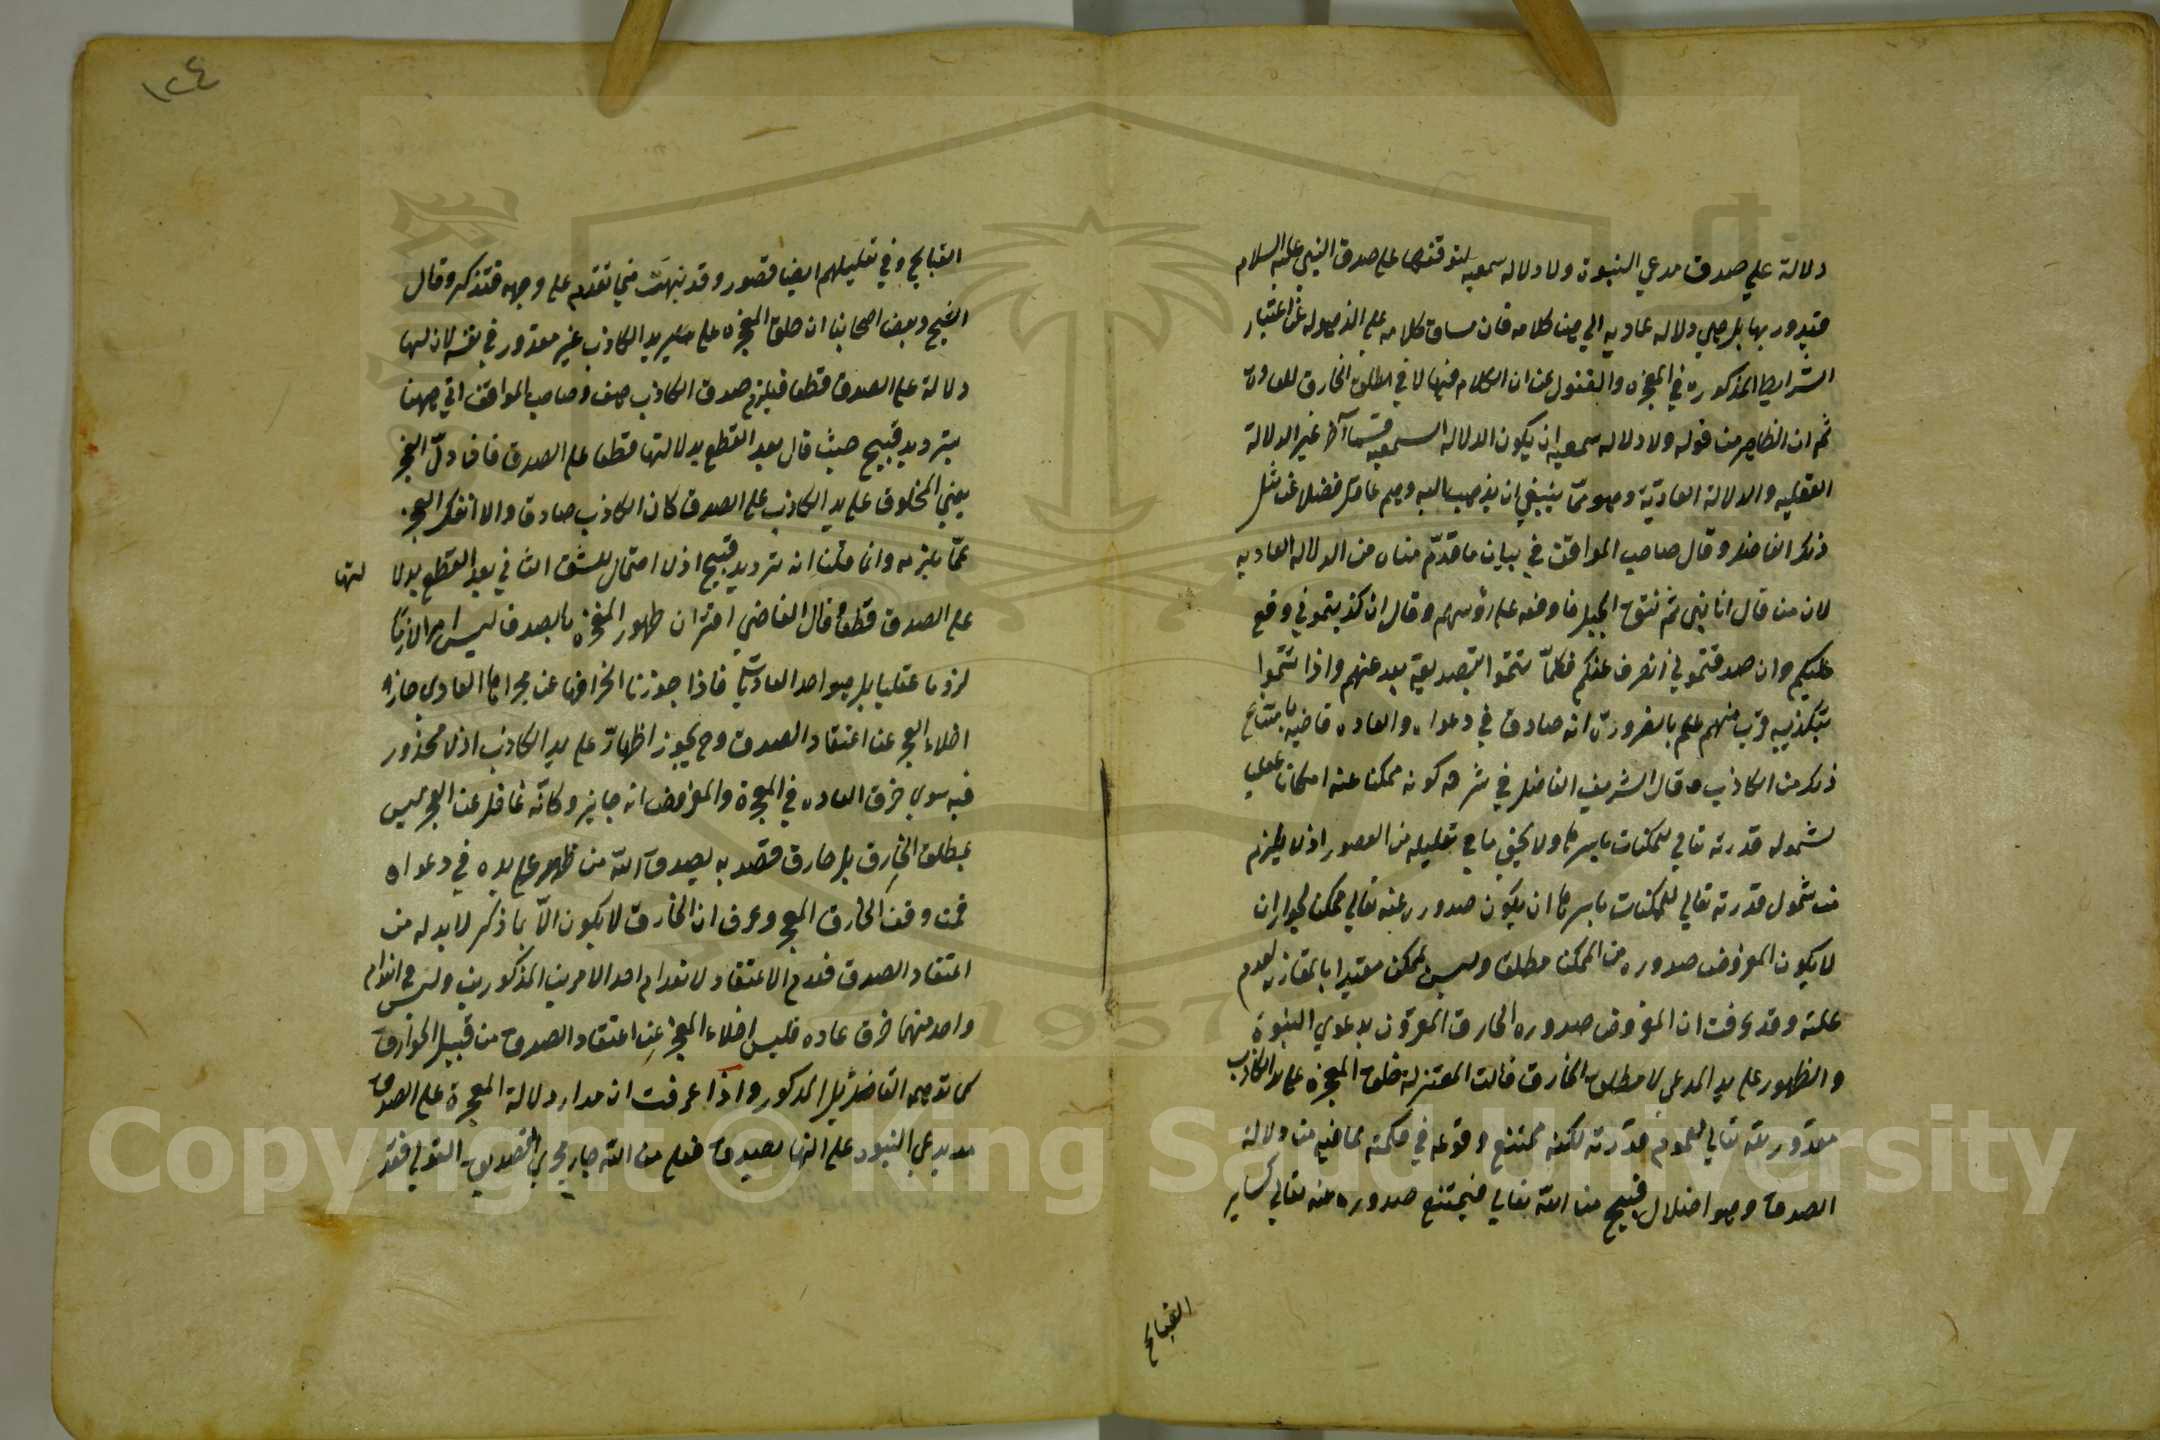 دلالة علي صدق مدعي النبوة ولا دلاله سمعيه لتوقفها علي صدق النبي عليه السلام
فيدور بها بل هي دلاله عاديه الي هنا كلامه فان مساق كلامه علي الذهول عن اعتبار
الشرايط المذكوره في المعجزه والغفول عن ان الكلام فيها لا في المطلق الخارق للعادة
ثم ان الظاهر من قوله ولا دلاله سمعيه ان يكون الدلاله السمعيه قسما آخر غير الدلالة
العقليه والدلالة العاديّة وهو ممّا ينبغي ان يذهب اليه وهم عاقل فضلا عن مثل
ذلك الفاضل وقال صاحب المواقف في بيان ما قدّم من الدلاله العاديه
لان من قال انا نبي ثم نتق الجبل فاوقفه علي رؤسهم وقال ان كذبتموني وقع
عليكم وان صدقتموني انصرف عنكم فكلّما همّوا بتصديقه بعد عنهم واذا همّوا
بتكذيبه قرب منهم علم بالضرورة انه صادق في دعواه والعاده قاضيه بامتناع
ذلك من الكاذب وقال الشريف الفاضل في شرحه كونه ممكنا عنه امكانا عقليا
لشمول قدرته تعالي للممكنات باسرها ولا يخفي ما في تعليله من القصور اذ لا يلزم
من شمول قدرته تعالي للممكنات باسرها ان يكون صدوره عنه تعالي ممكنا لجواز ان
لا يكون المفروض صدوره من الممكن مطلقا وليس بممكن مقيدا بالمقارنه لعدم
علمه وقد عرفت ان المفروض صدوره الخارق المقرون بدعوي النبوة
والظهور علي يد المدعي لا مطلق الخارق قالت المعتزلة خلق المعجزه علي يد الكاذب
مقدور لله تعالي لعموم قدرته لكنه ممتنع وقوعه في حكمته لما فيه من دلالة
الصدق وهو اضلال قبيح من الله تعالي فيمتنع صدوره عنه تعالي كساير
القبايح
١٢٤
القبايح وفي تعليلهم ايضا قصور وقد نبهت فيما تقدم علي وجهه فتذكر وقال
الشيخ وبعض اصحابنا ان خلق المعجزه علي يد الكاذب غير مقدور في نفسه لان لها
دلالة علي الصدق قطعا فيلزم صدق الكاذب وصاحب المواقف اتي ههنا
بترديد قبيح حيث قال بعد القطع بدلالتها قطعا علي الصدق فان دلّ المعجز
يعني المخلوق علي يد الكاذب علي الصدق كان الكاذب صادقا والا انفك المعجز
عمّا يلزمه وانما قلنا انه ترديد قبيح اذ لا احتمال للشق الثاني بعد القطع بدلا لتها
علي الصدق قطعا قال القاضي اقتران ظهور المعجزه بالصدق ليس امرا لازما
لزوما عقليا بل هو احد العاديات فاذا جوزنا انخراقها عن مجراها العادي جاز
اخلاء المعجز عن اعتقاد الصدق وح يجوز اظهاره علي يد الكاذب اذ لا محذور
فيه سوي خرق العاده في المعجزة والمفروض انه جايز وكانّه غافل عن المعجز ليس
بمطلق الخارق بل خارق قصد به تصديق الله من ظهر علي يده في دعواه
فمن وقف الخارق المعجز وعرف ان الخارق لا يكون الّا بما ذكر لا بد له من
اعتقاد الصدق فعدم الاعتقاد لانعدام احد الامرين المذكورين وليس في انعدام
واحد منهما خرق عاده فليس اخلاء المعجز عن اعتقاد الصدق من قبيل الخوارق
كما توهمه القاضي بل المذكور واذا عرفت ان مدار دلالة المعجزة علي الصدق
مدعي النبوه علي انها تصديق فعلي من الله جار مجري التصديق القولي فقد